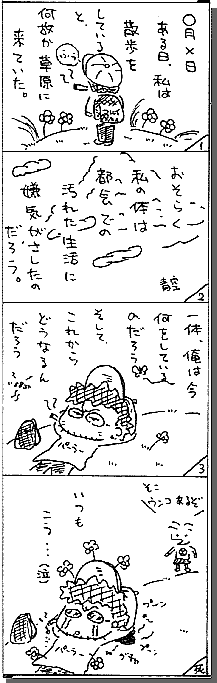 〇月×日
ある日、私は
散歩を
していると、
何故か草原に
来ていた。
1
おそらく
私の体は
都気での
汚れた生活に
嫌気がさしたの
だろう。
青空
2
一体、俺は今
何をしている
のだろう
そして
これから
どうなるん
だろう
パーラー
3
そこ
ウンコあるぞ
いつも
こう…(泣
パーラー
プーン
プーン